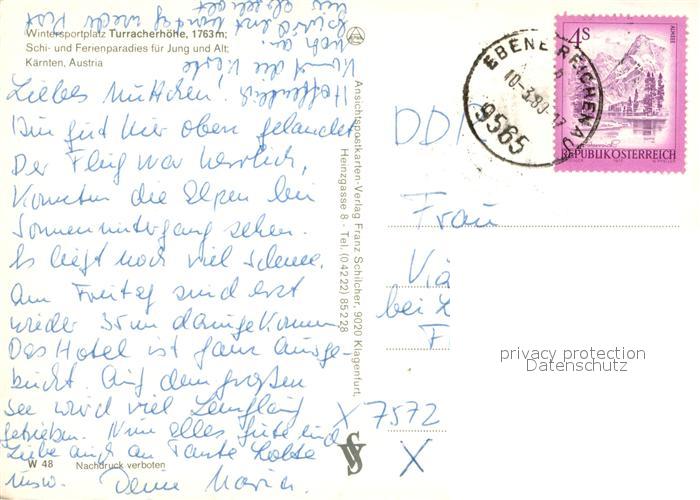 Wintersportplatz Turracherhöhe, 1763 m;
Schi- und Ferienparadies für Jung und Alt;
Kärnten, Austria
Liebes Muttchen!
Bin gut hier oben gelandet
Der Flug war herrlich,
Konnten die Alpen bei
Sonnenuntergang sehen.
Es liegt noch viel Schnee.
Am Freitag sind erst
wieder 35 cm dazugekommen
Das Hotel ist ganz ausge-
bucht. Auf dem großen
See wird viel Langlauf
getrieben. Nun alles Gute und
Liebe auch an Tante
usw. Deine Maria.
Hoffentlich
kommt die Karte
noch an.
W 48 Nachdruck verboten
Ansichtspostkarten-Verlag Franz Schilcher, 9020 Klagenfurt,
Heinzgasse 8 - Tel. (0 42 22) 85 2 28
EBENE REICHENAU
9565
4S
ALMSEE
REPUBLIK ÖSTERREICH
DDR
Frau
bei
X 7572
X
privacy protection
Datenschutz